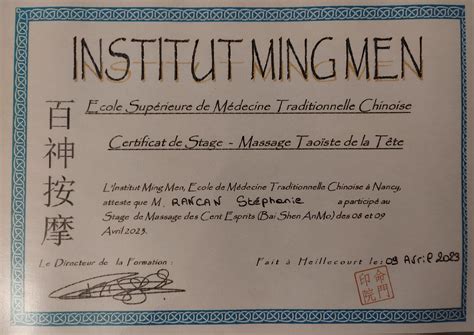 INSTITUT MING MEN
Ecole Supérieure de Médecine Traditionnelle Chinoise
Certificat de Stage - Massage Taoïste de la Tête
百神按摩
L'Institut Ming Men, Ecole de Médecine Traditionnelle Chinoise à Nancy,
atteste que M. RANCAN Stéphanie a participé au
Stage de Massage des Cent Esprits (Bai Shen AnMo) des 08 et 09
Avril 2023.
Le Directeur de la Formation :
Fait à Heillecourt le : 09 Avril 2023
命門
印院